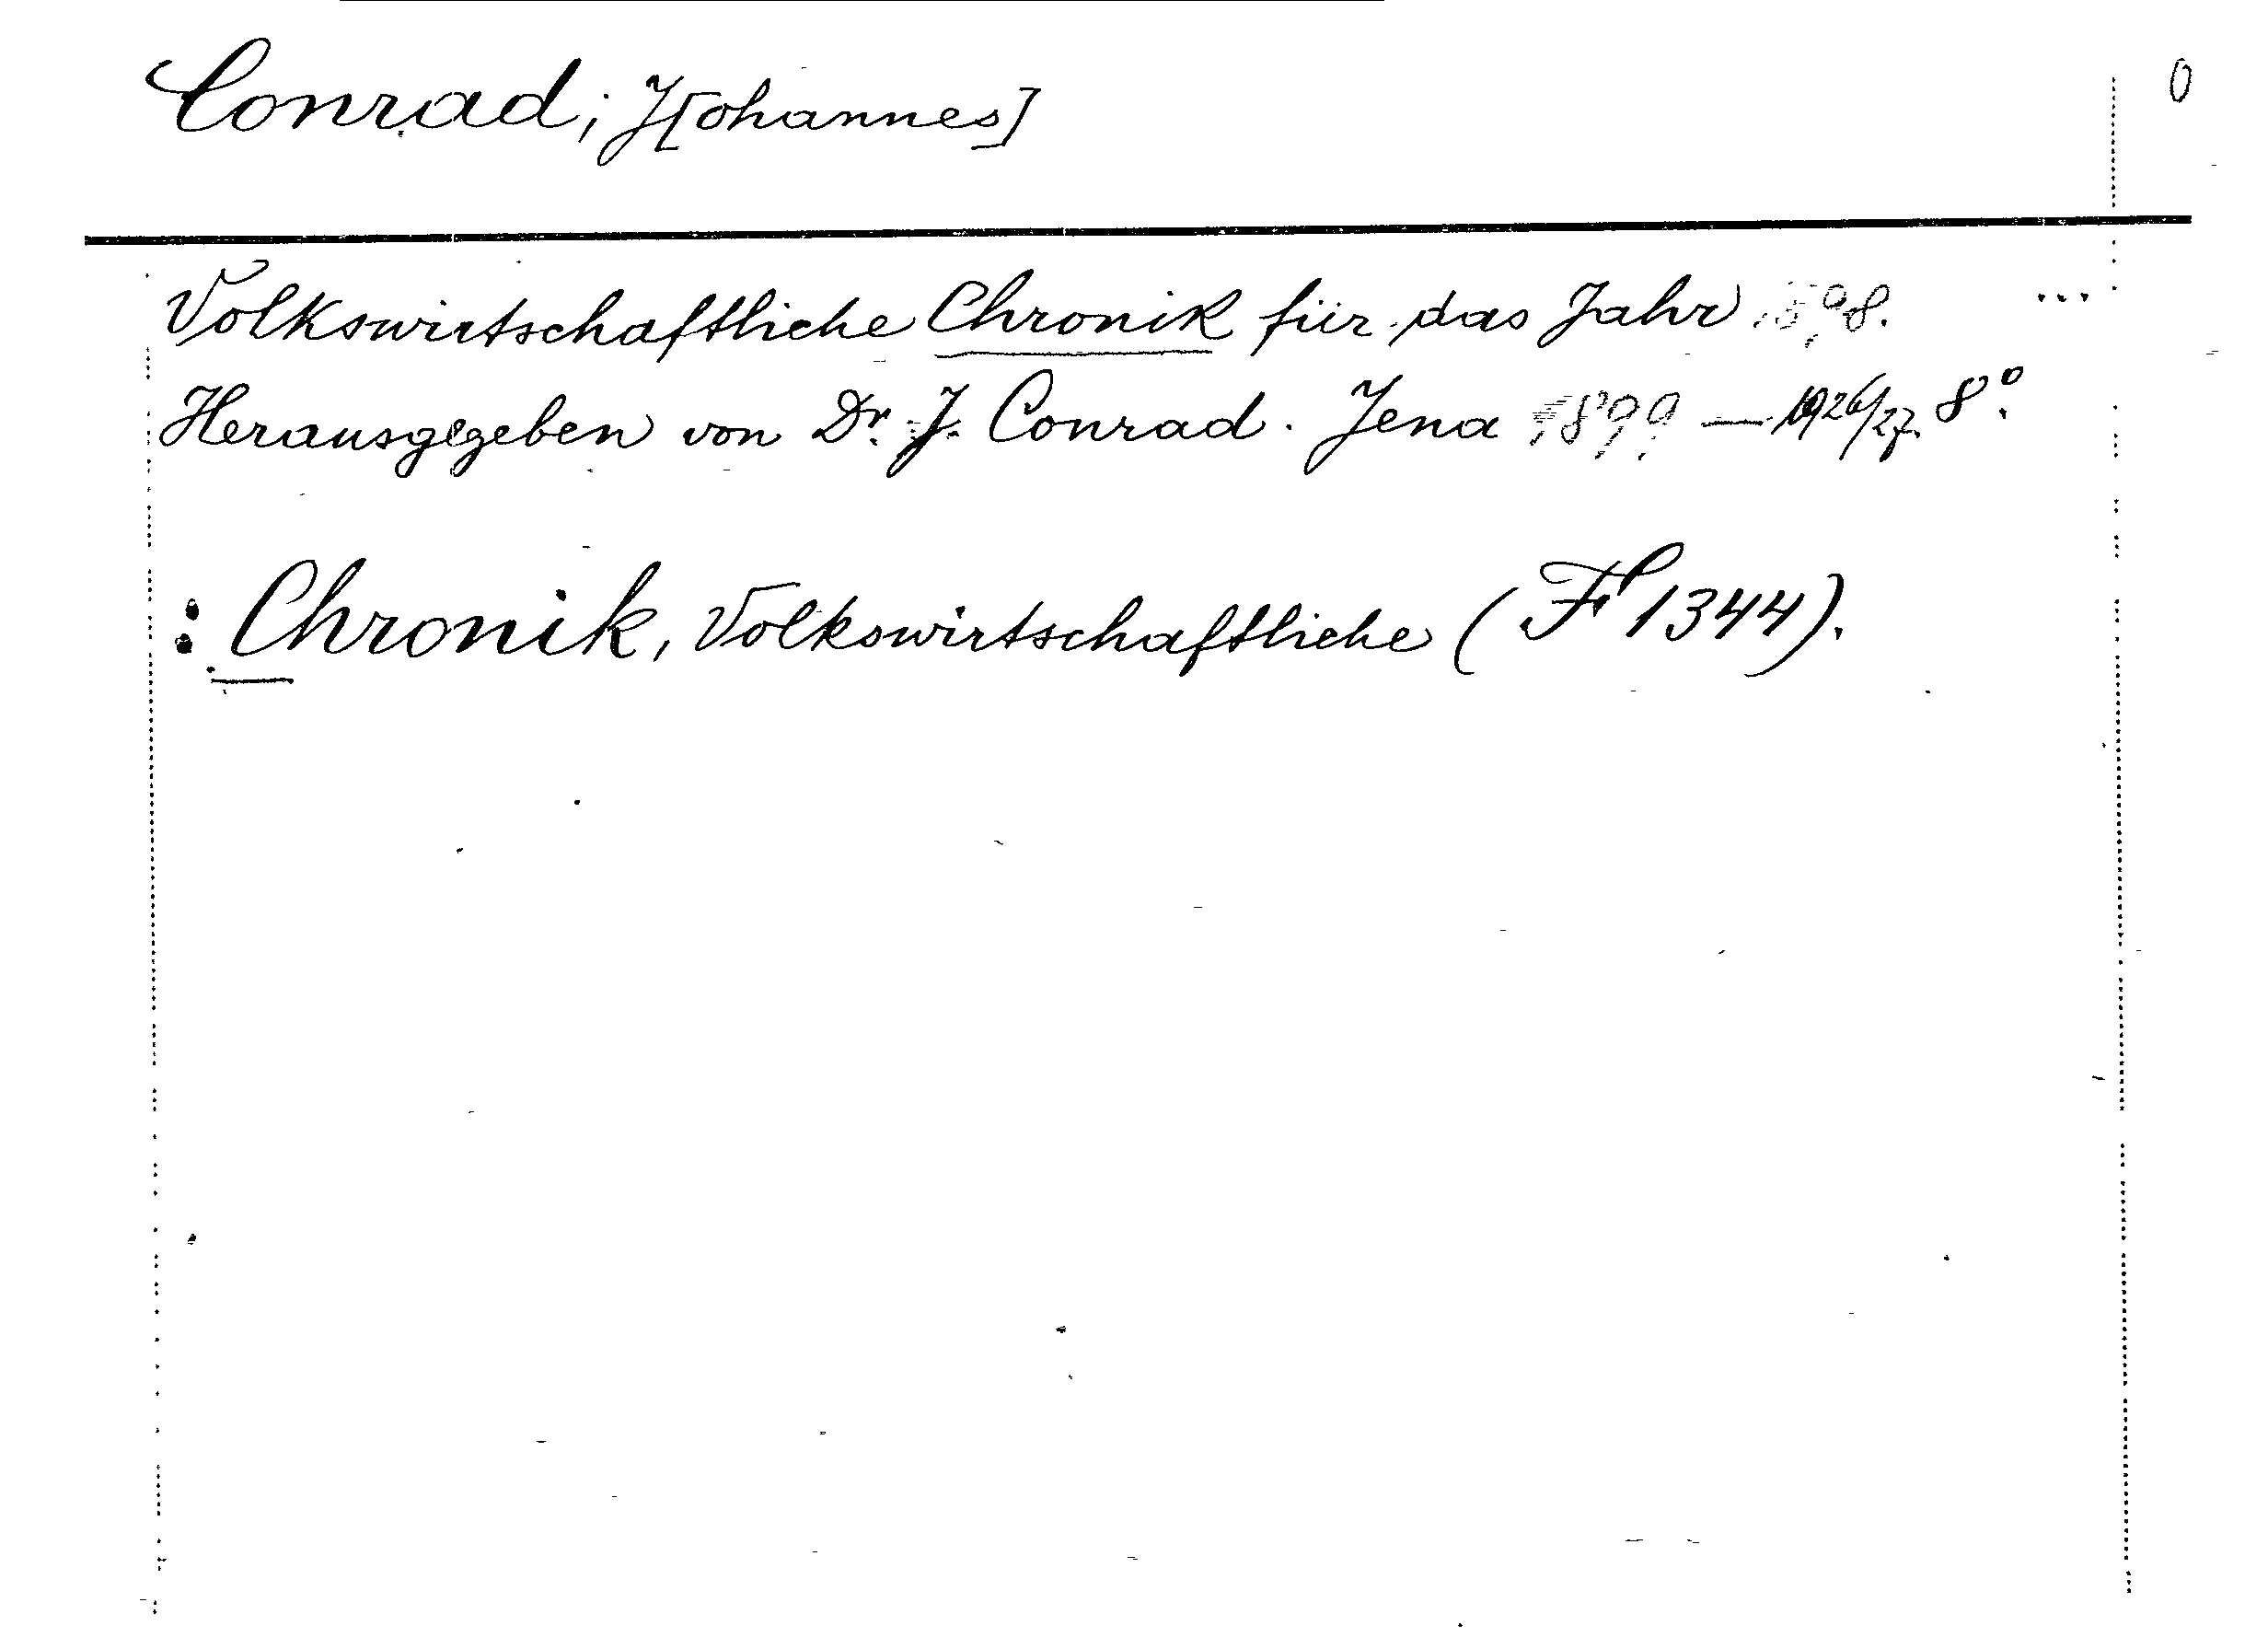 Conrad, J[ohannes]
0
Volkswirtschaftliche Chronik für das Jahr 1898. ...
Herausgegeben von Dr. J. Conrad. Jena 1899 — 1926/27. 8°.
: Chronik, Volkswirtschaftliche (Ff 1344).